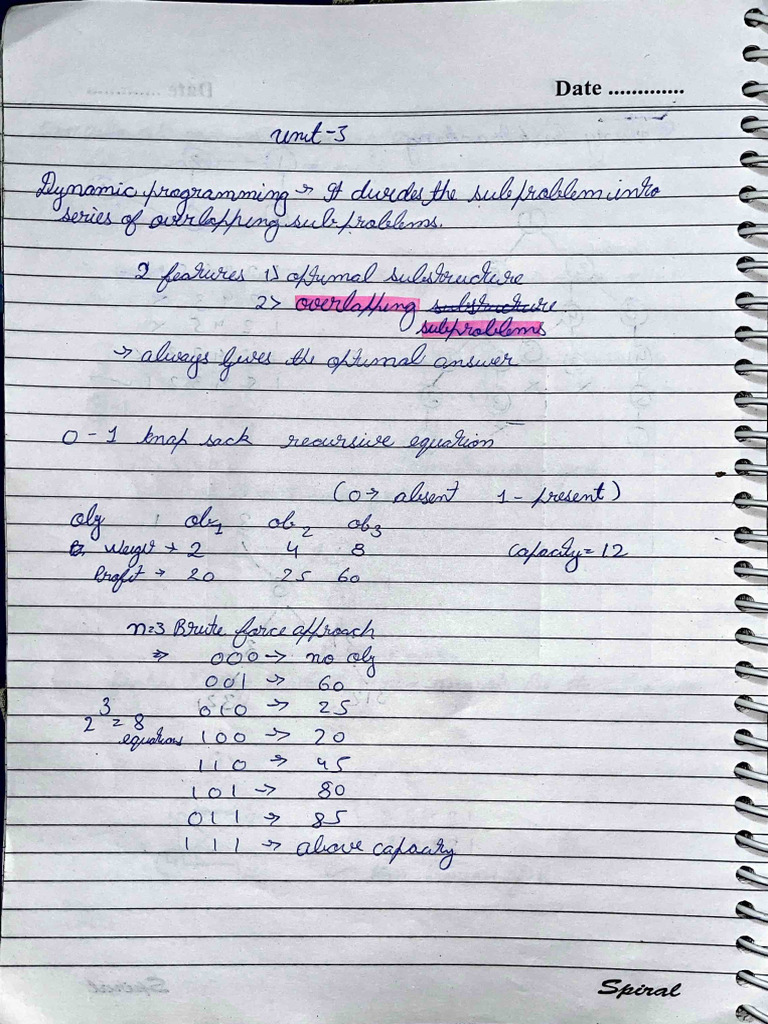 Date .............
Unit-3
Dynamic programming → It divides the subproblem into
series of overlapping subproblems.
2 features 1> optimal substructure
2> overlapping substructure
subproblems
→ always gives the optimal answer
0-1 knap sack recursive equation
(0 → absent 1 - present)
obj ob1 ob2 ob3
Weight → 2 4 8 Capacity = 12
Profit → 20 25 60
n=3 Brute force approach
⇒ 000 → no obj
001 → 60
010 → 25
2^3 = 8
equations 100 → 20
110 → 45
101 → 80
011 → 85
111 → above capacity
Spiral